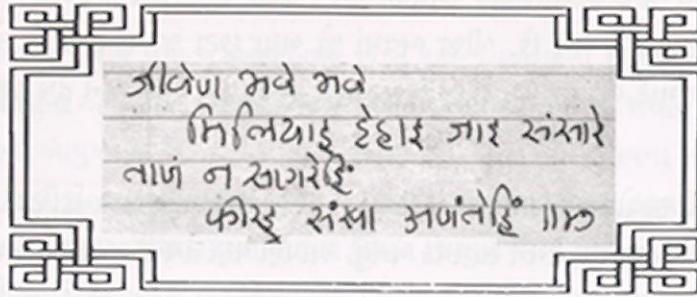 जीवेण भवे भवे
मिलियाइ देहाइ जाइ संसारे
ताणं न सागरेहिं
कीरइ संखा अणंतेहिं ॥४७